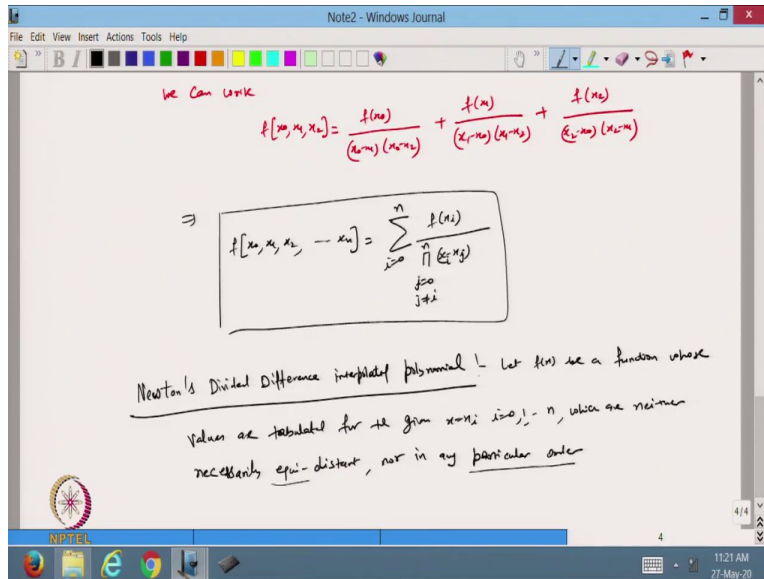 Note2 - Windows Journal
File Edit View Insert Actions Tools Help
we can write
f[x0, x1, x2] = f(x0)/((x0-x1)(x0-x2)) + f(x1)/((x1-x0)(x1-x2)) + f(x2)/((x2-x0)(x2-x1))
⇒ f[x0, x1, x2, --- xn] = ∑_{i=0}^{n} f(xi)/∏_{j=0, j≠i}^{n} (xi-xj)
Newton's Divided Difference interpolated polynomial :- Let f(x) be a function whose
values are tabulated for the given x=xi i=0,1-- n, which are neither
necessarily equi-distant, nor in any particular order
NPTEL
4/4
4
11:21 AM
27-May-20